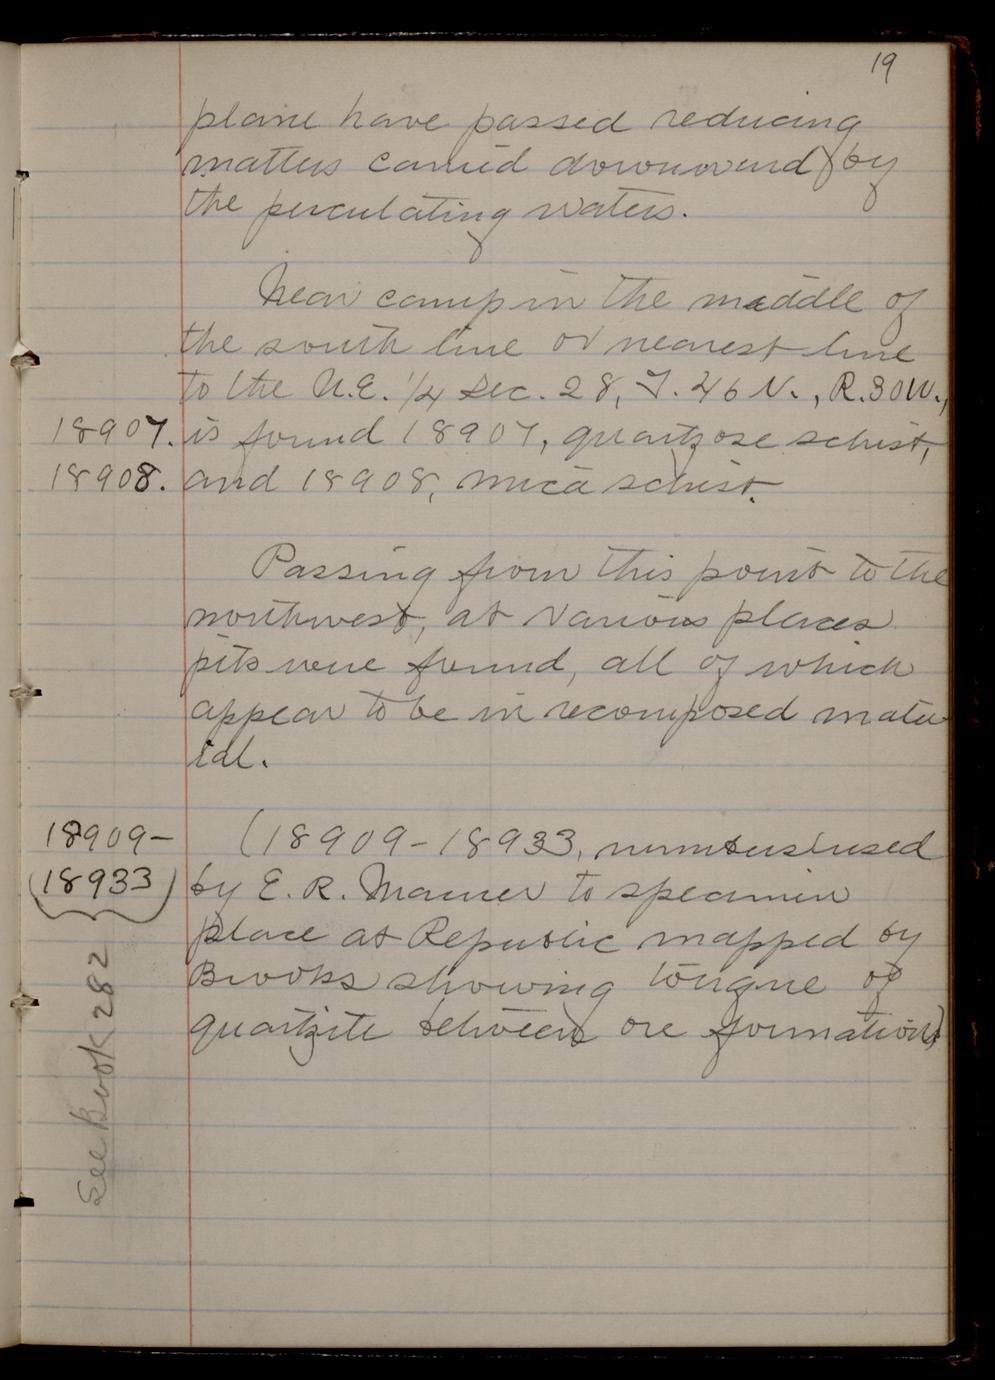 19
plane have passed reducing
matters carried downward by
the perculating waters.
Near camp in the middle of
the south line or nearest line
to the N.E. 1/4 Sec. 28, T. 46 N., R. 30 W.,
18907. is found 18907, quartzose schist,
18908. and 18908, mica schist.
Passing from this point to the
northwest, at various places
pits were found, all of which
appear to be in recomposed mater
ial.
18909- (18909-18933, numbers used
(18933) by E. R. Maurer to specimen
place at Republic mapped by
Brooks showing tongue of
quartzite between ore formations)
See Book 282